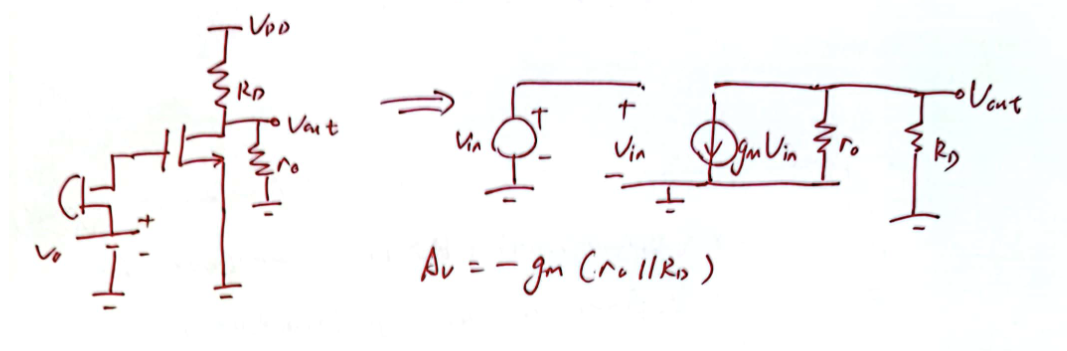 VDD
RD
Vout
ro
Vo
+
-
Vin
+
-
+
Vin
-
gmVin
ro
RD
Vout
Av = - gm (ro // RD)